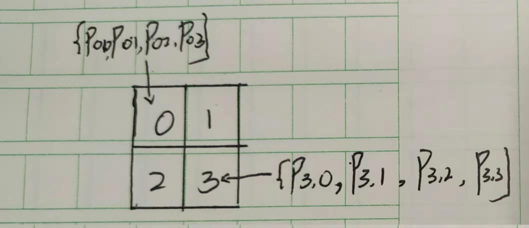 {P00,P01,P02,P03}
0 1
2 3 {P3,0, P3,1, P3,2, P3,3}